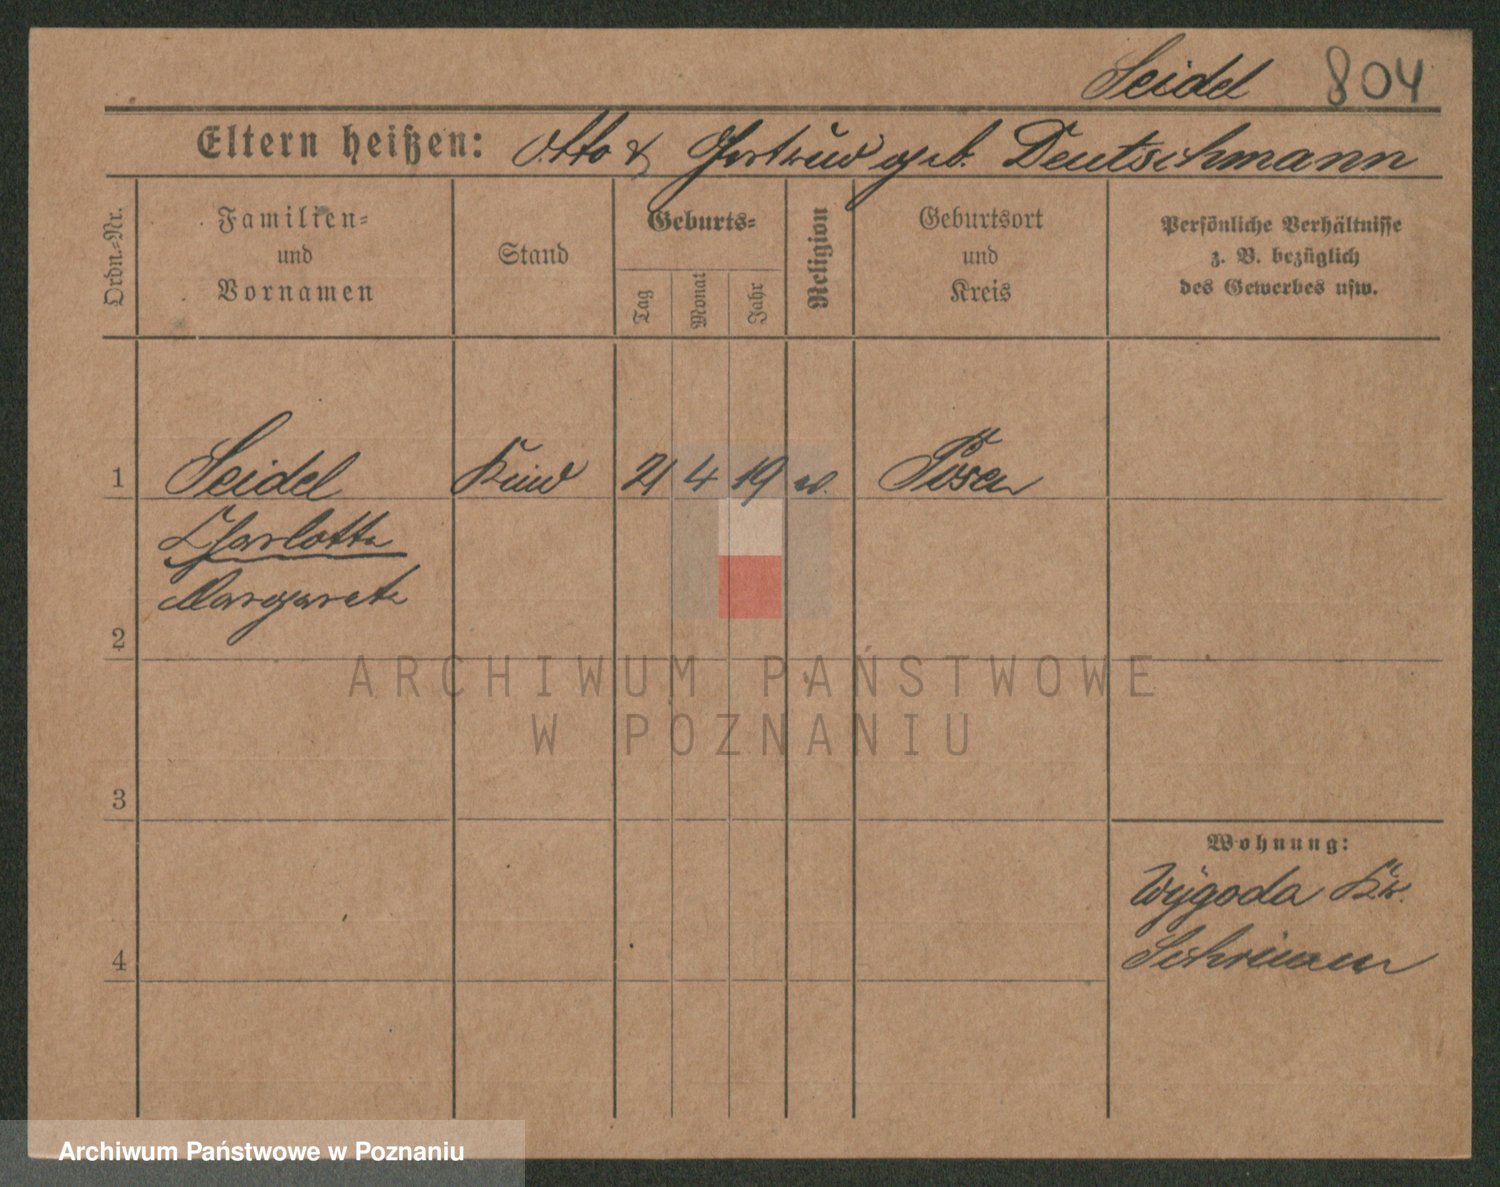 Seidel 804
Eltern heißen: Otto & Gertrud geb. Deutschmann
Ordn.-Nr.
Familien-
und
Vornamen
Stand
Geburts-
Tag
Monat
Jahr
Religion
Geburtsort
und
Kreis
Persönliche Verhältnisse
z. B. bezüglich
des Gewerbes usw.
1 Seidel Kind 21 4 19 Posen
Charlotte
Margarete
2
ARCHIWUM PAŃSTWOWE
W POZNANIU
3
Wohnung:
Wygoda Kr.
4 Schrimm
Archiwum Państwowe w Poznaniu